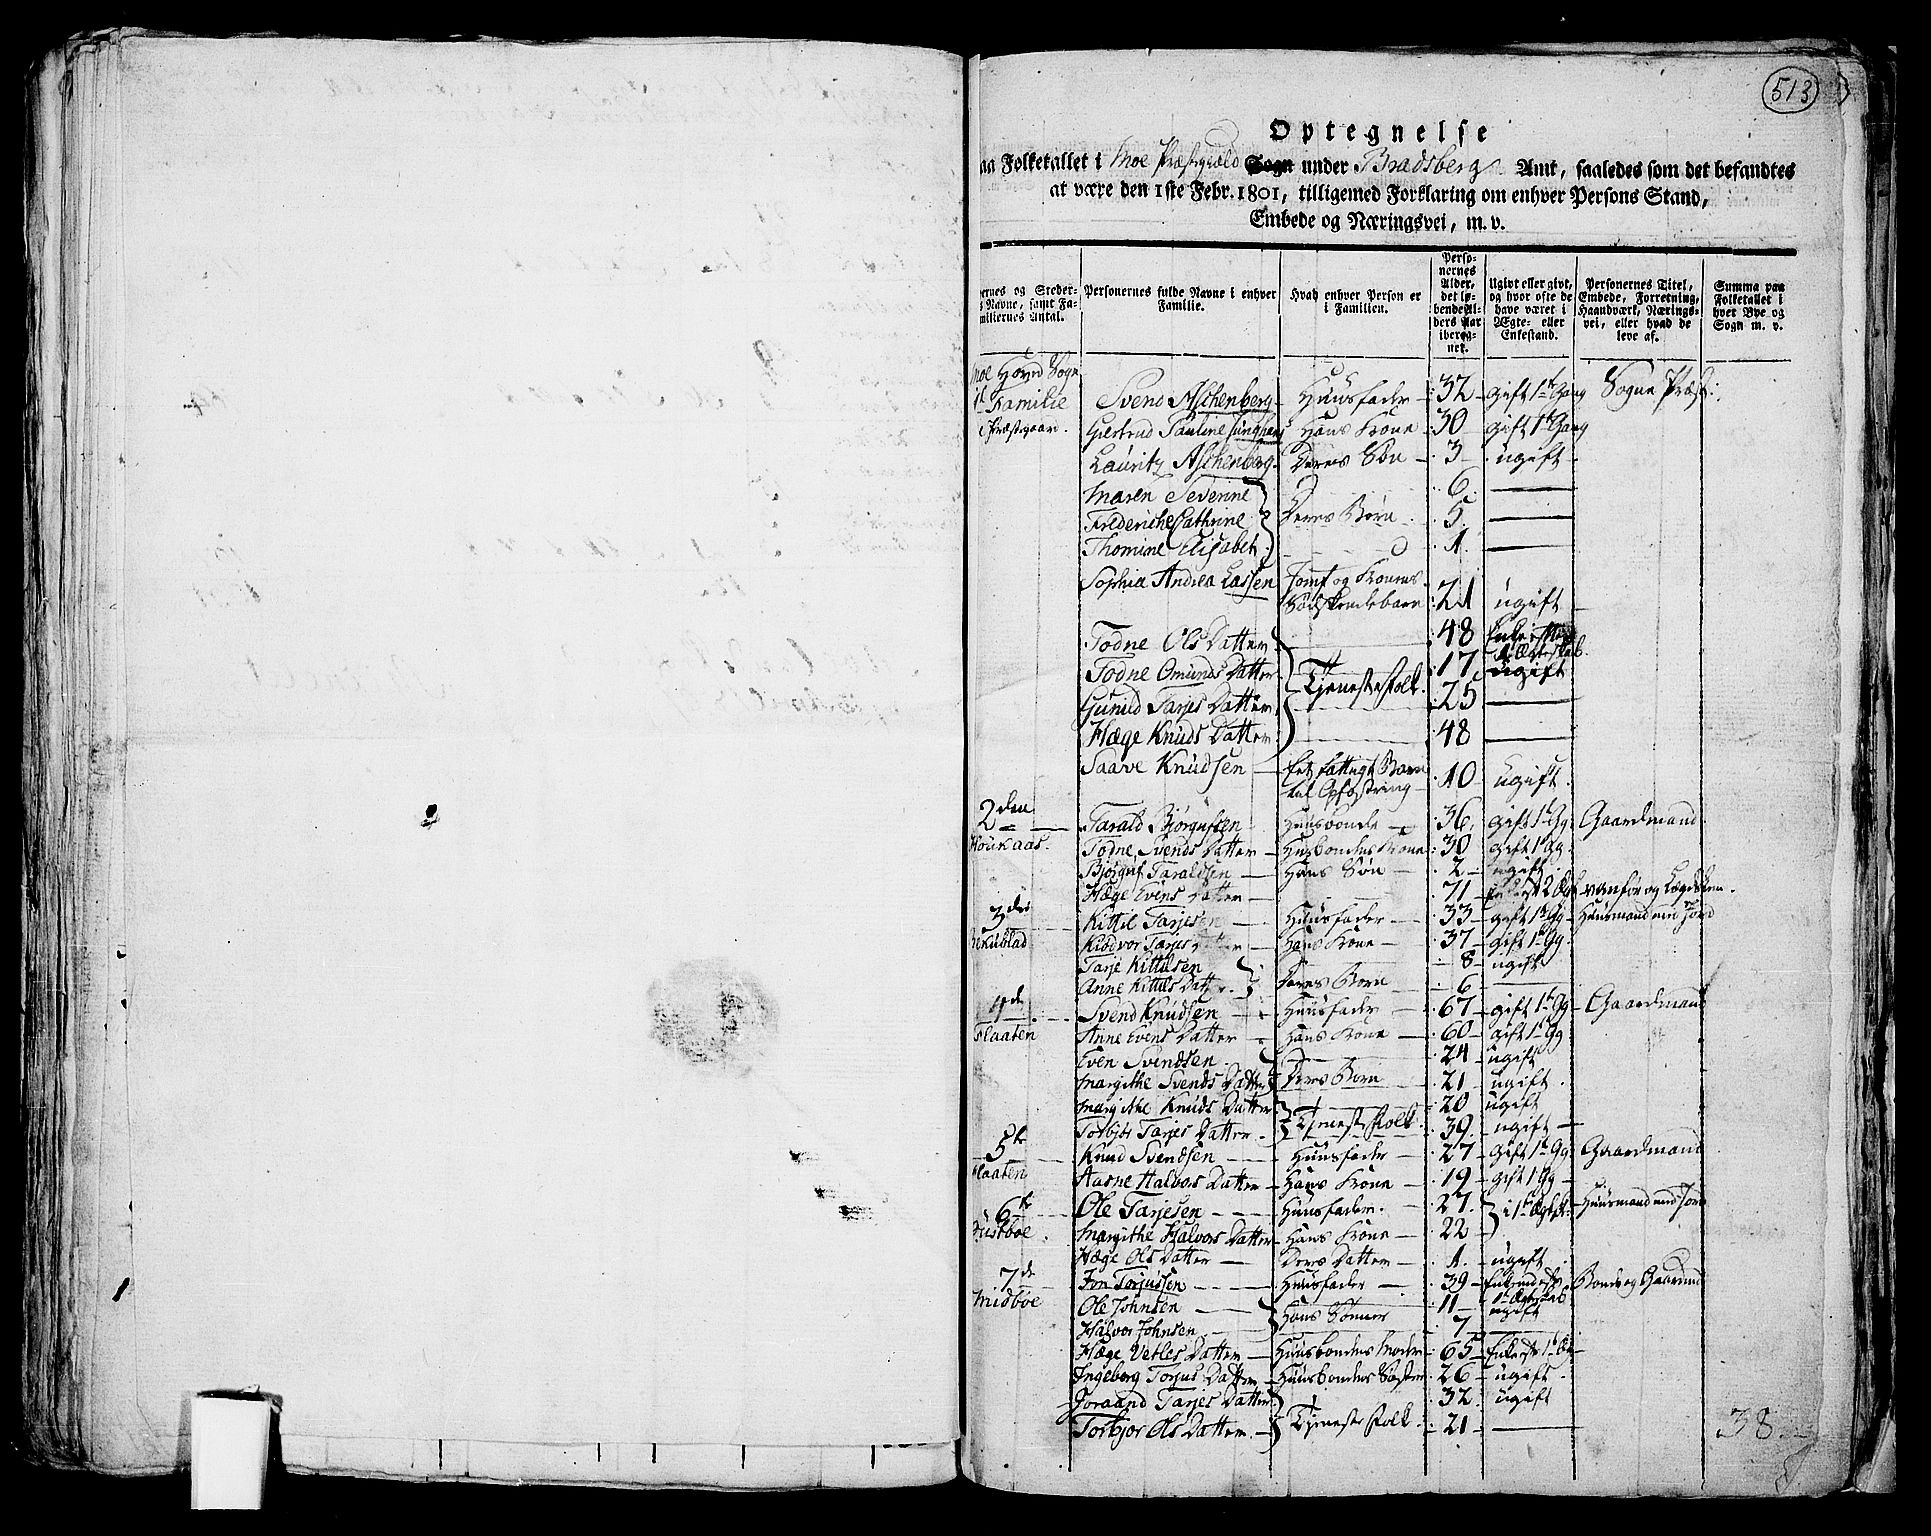 513
Optegnelse
aa Folketallet i Moe Præstegiæld Sogn under Bradsberg Amt, saaledes som det befandtes
at være den 1ste Febr. 1801, tilligemed Forklaring om enhver Persons Stand,
Embede og Næringsvei, m. v.
ernes og Steder-
s Navne, samt Fa-
miliernes Antal.
Personernes fulde Navne i enhver
Familie.
Hvad enhver Person er
i Familien.
Perso-
nernes
Alder,
det lø-
bende Al-
ders Aar
ibereg-
net.
Ugivt eller givt,
og hvor ofte de
have været i
Ægte- eller
Enkestand.
Personernes Titel,
Embede, Forretning,
Haandværk, Nærings-
vei, eller hvad de
leve af.
Summa paa
Folketallet i
hver Bye og
Sogn m. v.
Moe Hoved Sogn
1te Familie Svend Aschenberg Huusfader 32 gift 1te Gang Sogne Præst
Præstegaard. Giertrud Pauline Junghans Hans Kone 30 gift 1te Gang
Lauritz Aschenberg Deres Søn 3 ugift
Maren Severine 6
Frederiche Cathrine Deres Børn 5
Thomine Elisabet 1
Sophia Andrea Lassen Jomf og Konens
Sødskendebarn 21 ugift
Todne Ols Datter 48
1 Ægteskab.
Todne Omunds Datter Tjenestefolk 17 ugift
Gunild Tarjes Datter 25
Hæge Knuds Datter 48
Saave Knudsen Et fattigt Barn
til Opfostring 10 ugift
2den Tarald Bjørgufsen Huusbonde 36 gift 1te Gg. Gaardmand
Houkaas. Todne Svends Datter Husbondens Kone 30 gift 1te Gg.
Bjørguf Taraldsen Hans Søn 2 ugift
Hæge Evens Datter 71 vanfør og Lægdslem
3die Kittil Tarjesen Huusfader 33 gift 1te Gg Huusmand med Jord
Kiødvor Tarjes Datter Hans Kone 37 gift 1te Gg.
Tarje Kittilsen 8 ugift
Anne Kittils Datter Deres Børn 6
4de Svend Knudsen Huusfader 67 gift 1te Gg Gaardmand
Flaaten Anne Evens Datter Hans Kone 60 gift 1te Gg
Even Svendsen 24 ugift
Margithe Svends Datter Deres Børn 21 ugift
Margithe Knuds Datter 20 ugift
Torbjør Tarjes Datter Tjeneste Folk 39 ugift
5te Knud Svendsen Huusfader 27 gift 1te Gg Gaardmand
laaten Aasne Halvors Datter Hans Kone 19 gift 1te Gg
6te Ole Tarjesen Huusfader 27 i 1te Ægtsk. Huusmand med Jord
Margithe Halvors Datter Hans Kone 22
Hæge Ols Datter Deres Datter 1 ugift
7de Jon Torjussen Huusfader 39 Bonde og Gaardmd
Midbøe Ole Johnsen Hans Sønner 11 ugift
Halvor Johnsen 7
Hæge Vetles Datter Huusbondens Moder 65
Ingeborg Torjus Datter Huusbondens Søster 26 ugift
Joraand Tarjes Datter 32 ugift
Torbjør Ols Datter Tjeneste Folk 21
38.